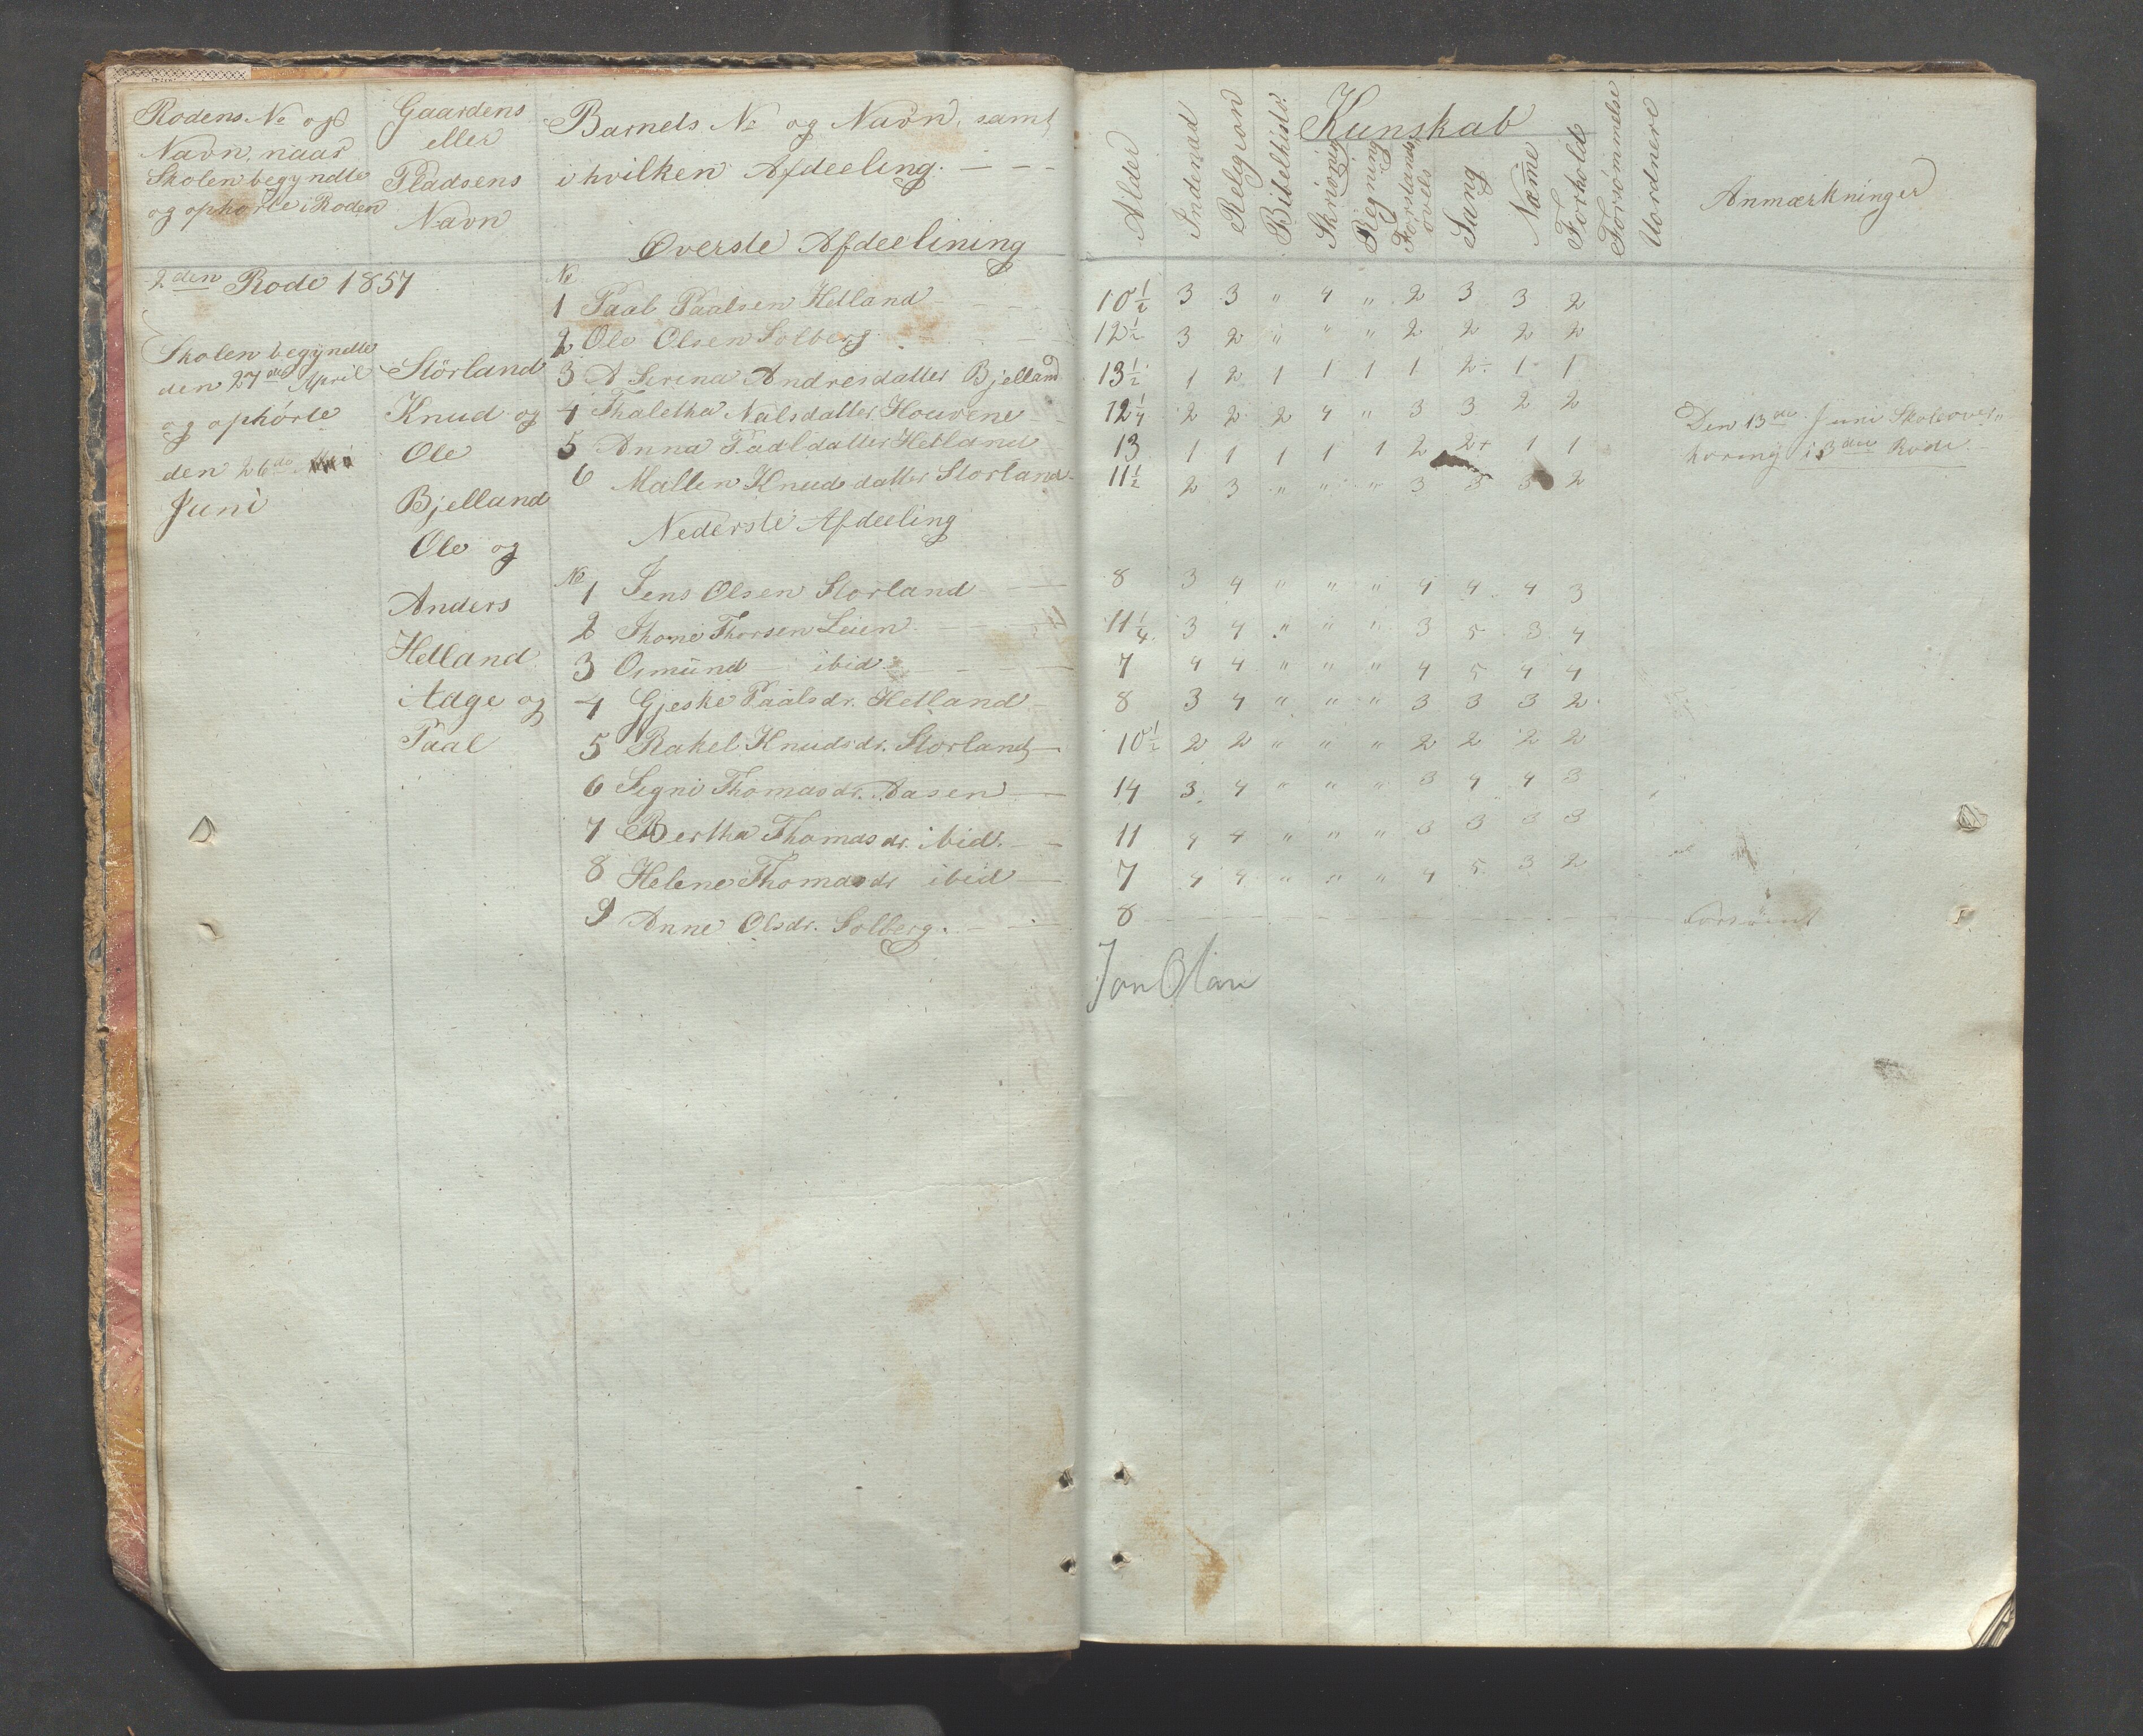 Rodens No og
Navn, naar
Skolen begyndte
og ophörte i Roden
Gaardens
eller
Pladsens
Navn
Barnets No og Navn, samt
i hvilken Afdeeling. — - -
Øverste Afdeelining
Alder
Indenad
Relgion
Bibelhisto.
Kunskab
Skrivnig
Regning
Forstands
övells
Sang
Næmme
Forhold
Forsömmelse
Uordnere
Anmærkninger
2den Rode 1857
Skolen begyndte
den 27de April
og ophörte
den 26de
Juni
Störland
Knud og
Ole
Bjelland
Ole og
Anders
Hetland
Adge og
Paal
No
1 Paal Paalsen Hetland - - - 10 1/2 3 3 " 4 " 2 3 3 2
2 Ole Olsen Solberg. - - 12 1/2 3 2 " " " 2 2 2 2
3 A Serina Andresdatter Bjelland 13 1/2 1 2 1 1 1 1 2÷ 1 1
4 Thaletha Nalsdatter Houvene - - 12 1/4 2 2 2 4 " 3 3 2 2 Den 13de Juni Skoleover„
5 Anna Paaldatter Hetland 13 1 1 1 1 1 2 2+ 1 1 horing i 3die Rode. -
6 Mallen Knuddatter Storland 11 1/2 2 3 " " " 3 3 3 2
Nederste Afdeeling
No
1 Jens Olsen Storland — 8 3 4 " " " 4 4 4 3
2 Thone Thorsen Leien - - - 11 1/4 3 4 " " " 3 5 3 4
3 Osmund — ibid. - - — 7 4 4 " " " 4 5 4 4
4 Gjeske Paalsdr. Hetland - 8 3 4 " " " 3 3 3 2
5 Rakel Knudsdr. Storland — 10 1/2 2 2 " " " 2 2 2 2
6 Segni Thomasdr. Aasen — 14 3 4 " " " 3 4 4 3
7 Bertha Thomasdr. ibid. - - 11 4 4 " " " 3 3 3 3
8 Helene Thomasdr ibid — 7 4 4 " " " 4 5 3 2
9 Anne Olsdr. Solberg. - — 8 - - - - - - - - - Forsömt
Jon Olan